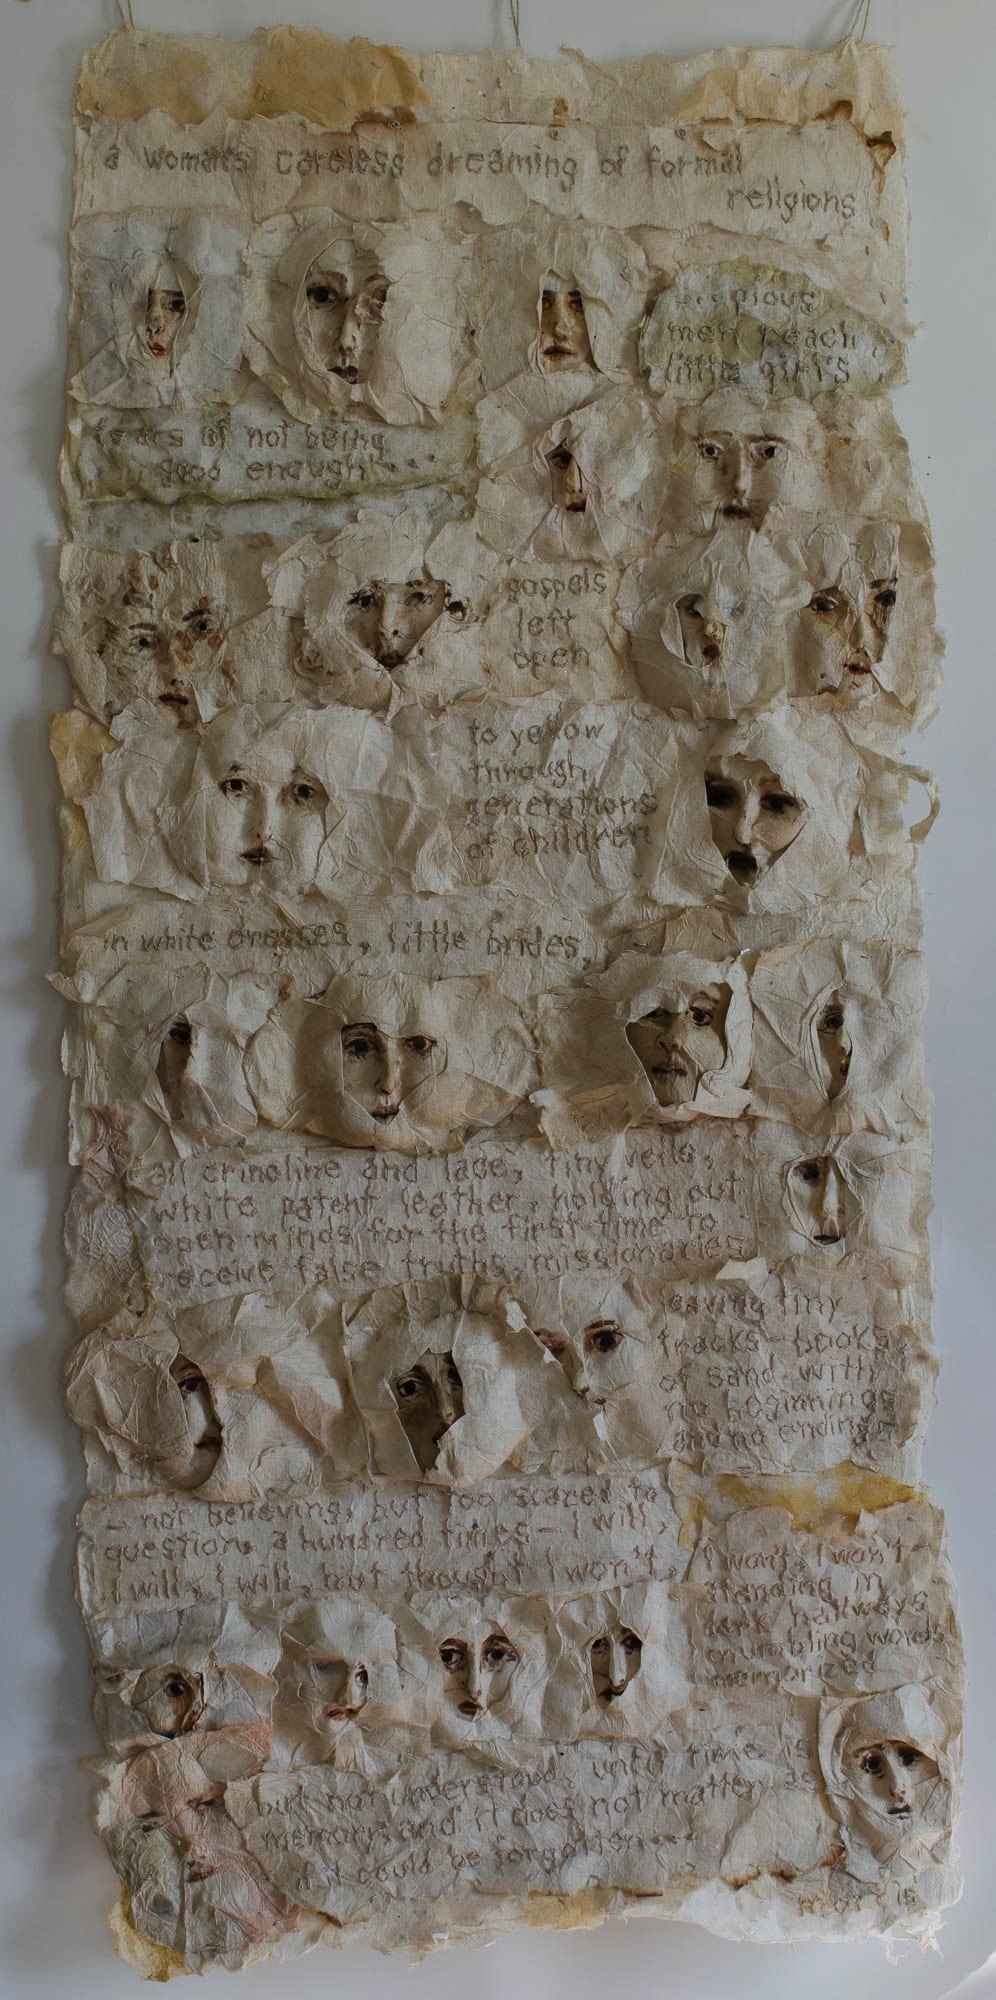 a woman's careless dreaming of formal
religions
pious
men preach
little girl's
fears of not being
good enough...
gospels
left
open
to yellow
through
generations
of children
in white dresses, little brides,
all crinoline and lace, tiny veils,
white patent leather, holding out
open minds for the first time to
receive false truths, missionaries
leaving tiny
tracks - books
of sand with
no beginnings
and no endings
- not believing, but too scared to
question, a hundred times - I will,
I will, I will, but thought I won't,
I won't, I won't -
standing in
dark hallways
mumbling words
memorized
but not understood, until time is
memory and it does not matter, as
if it could be forgotten...